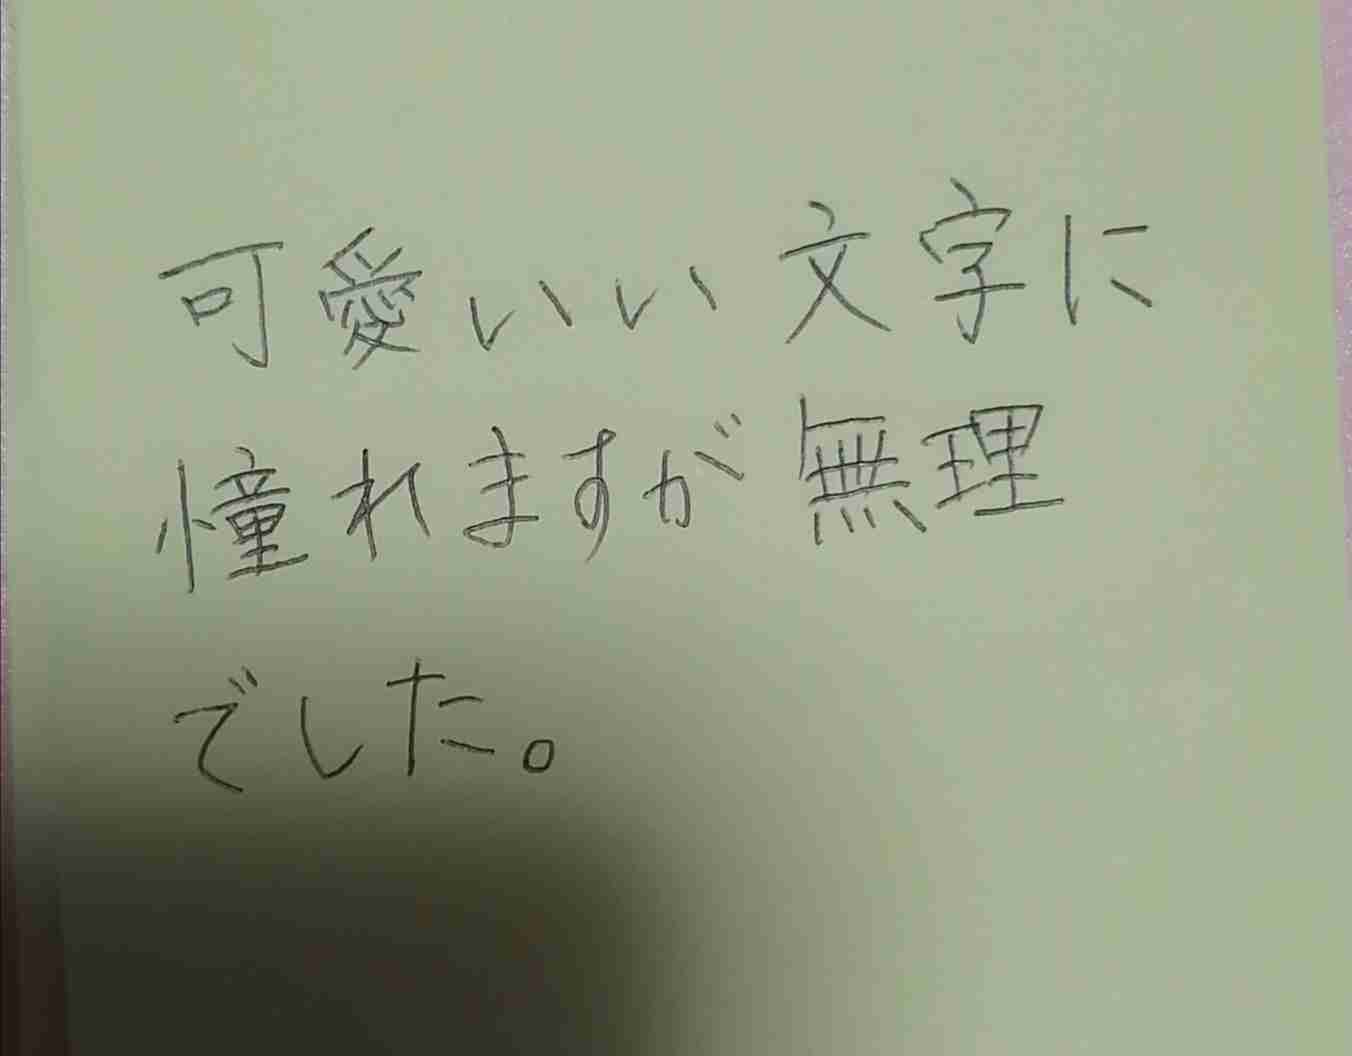 可愛いい文字に
憧れますが無理
でした。